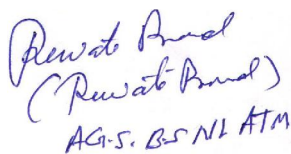 Rewati Prasad
(Rewati Prasad)
AG.S. BSNL ATM